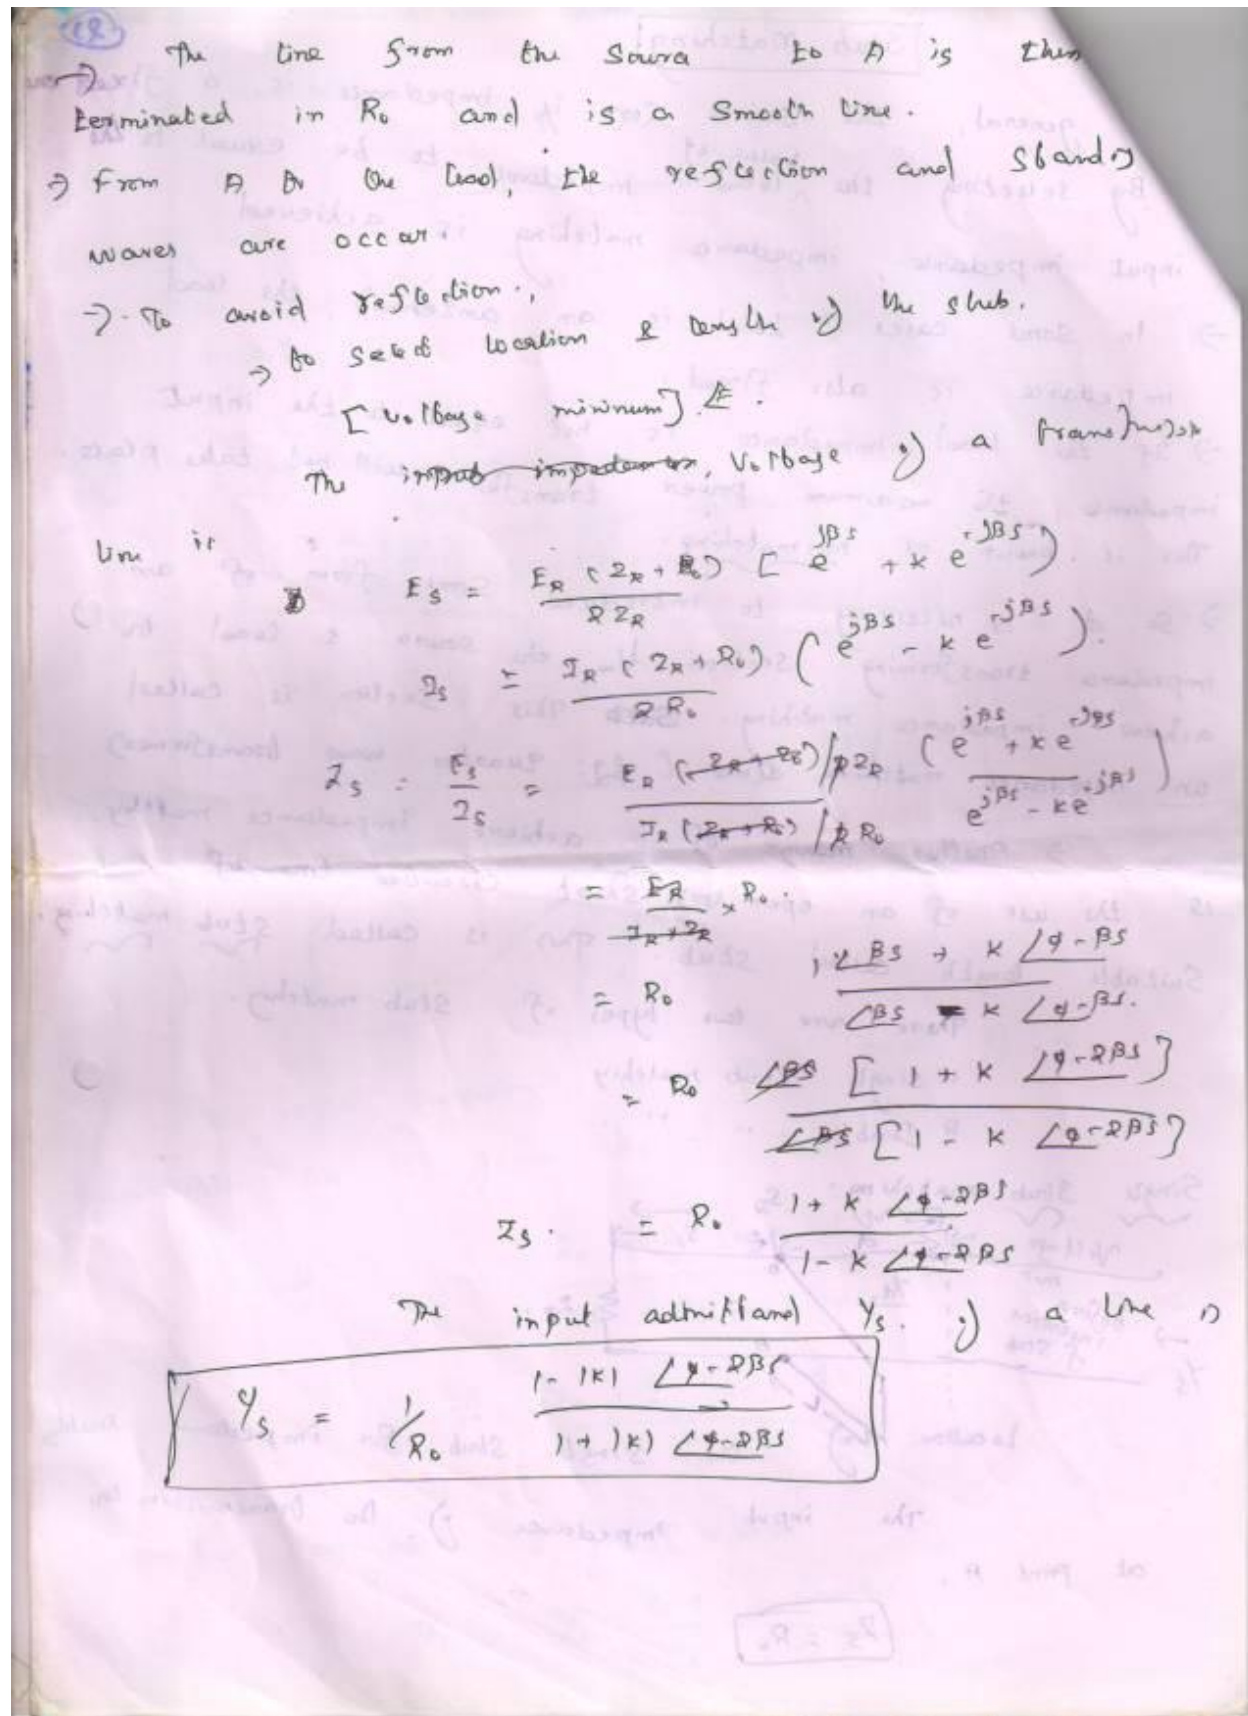 The line from the source to A is then
terminated in R₀ and is a smooth line.
→ From A to the load, the reflection and standing
waves are occur.
→ To avoid reflection.,
→ to select location & length of the stub.
[Voltage minimum].
The input impedance, Voltage of a transmission
line is
E_S = E_R (Z_R + R₀) / 2 Z_R [e^{jβs} + k e^{-jβs})
I_S = I_R (Z_R + R₀) / 2 R₀ (e^{jβs} - k e^{-jβs}).
Z_S = E_S / I_S = E_R (Z_R + R₀) / 2Z_R / I_R (Z_R + R₀) / 2R₀ (e^{jβs} + k e^{-jβs} / e^{jβs} - k e^{-jβs})
= E_R / I_R × Z_R × R₀.
= R₀ ∠βs + k ∠φ-βs / ∠βs - k ∠φ-βs.
= R₀ ∠βs [1 + k ∠φ-2βs] / ∠βs [1 - k ∠φ-2βs]
Z_S. = R₀ 1 + k ∠φ-2βs / 1 - k ∠φ-2βs
The input admittand Y_S. of a line is
Y_S = 1/R₀ 1 - |k| ∠φ-2βs / 1 + |k| ∠φ-2βs